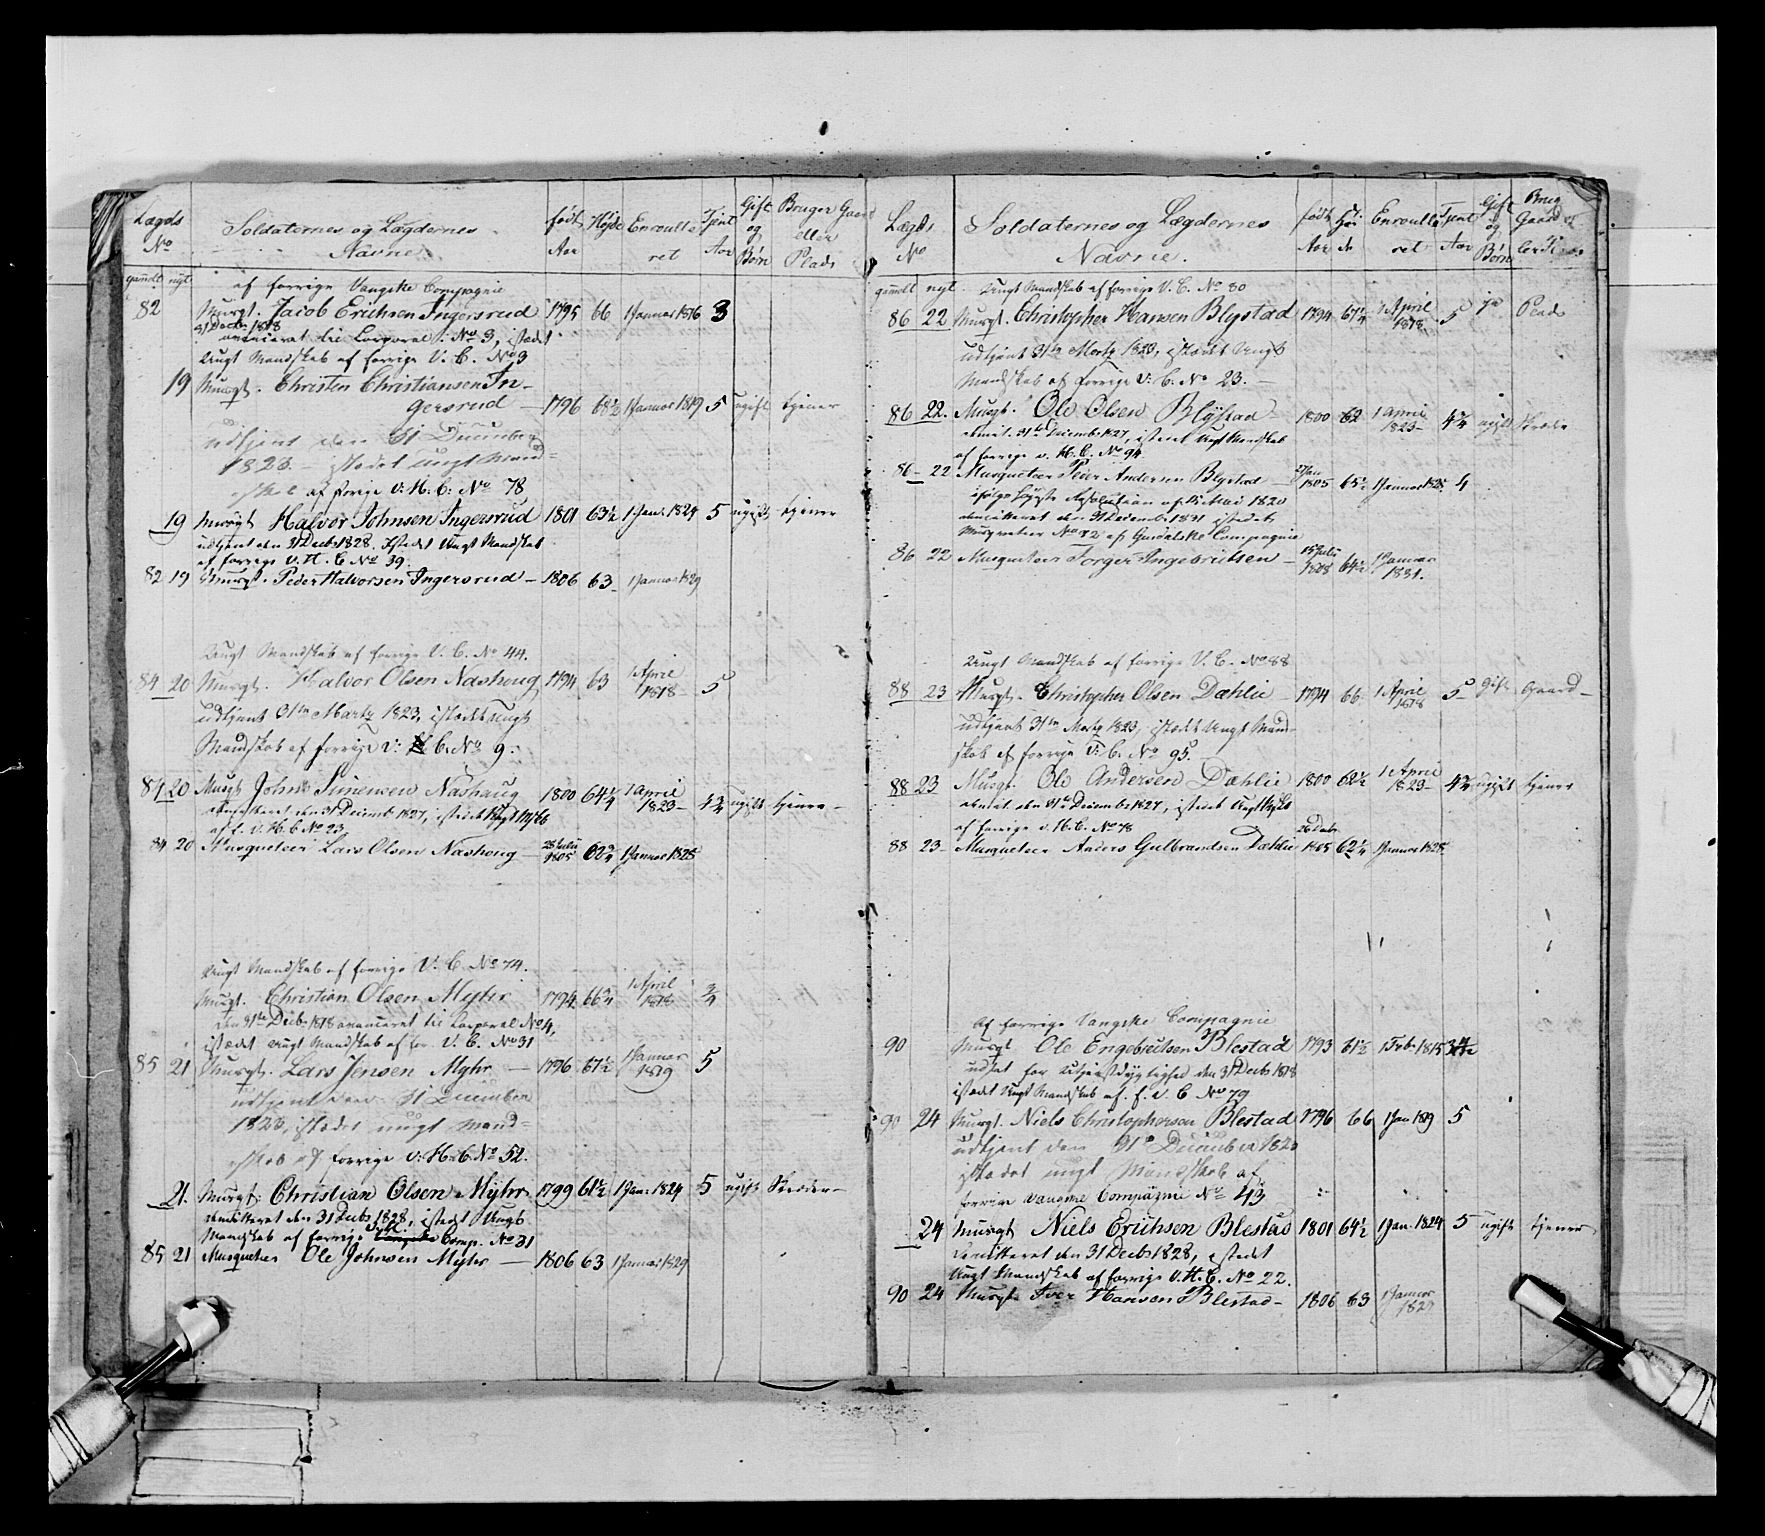 Lægds No
Soldaternes og Lægdernes Navne
født Aar
Højde
Enroulleret
Tjent Aar
Gift og Børn
Bruger Gaard eller Plads
gamelt nyt
af forrige Vangske Compagnie
82 Musqt. Jacob Erichsen Ingersrud 1795 66 1 Januar 1816 3
31 Decbr 1818
avanceret til Corporal No 3, istædet
Ungt Mandskab af forrige V. C. No 3
19 Musqt. Christen Christiansen In-
gersrud – 1796 68½ 1 Januar 1819 5 ugift tjener
udtjent den 31 December
1823 – istædet ungt Mand-
skab af forige V: H: C: No 78
19 Musqt Halvor Johnsen Ingersrud 1801 63½ 1 Jan: 1824 5 ugift tjener
udtjent den 31 Decbr 1828. Istedet Ungt Mandskab
af forrige V. H. C. No 39.
82 19 Musqt. Peder Halvorsen Ingersrud – 1806 63 – 1 Januar 1829
Ungt Mandskab af forrige V. C. No 44.
84 20 Musqt. Halvor Olsen Nashoug 1794 63 1 April 1818 5
udtjent 31te Martz 1823, istædet Ungt
Mandskab af forrige V: C. No 9.
84 20 Musqt John Simensen Nashaug 1800 64¼ 1 April 1823 – 4¾ ugift tjener –
den 31 Decemb 1827, istedet Ungt
af f. V. H. C No 23
84 20 Musqueteer Lars Olsen Nashoug – 28 Julii 1805 1 Januar 1828
Ungt Mandskab af forrige V. C. No 74.
Musqt. Christian Olsen Myhr 1794 66¾ 1 April 1818 ¾
den 31te Decbr 1818 avanceret til Corporal No 4,
istædet Ungt Mandskab af for. V. C. No 31
85 21 Musqt. Lars Jensen Myhr – 1796 67½ 1 Januar 1819 5
udtjent den 31 December
1823, istædet ungt Mand-
skab af forrige V: H. C. No 52.
21. Musqt: Christian Olsen Myhr 1799 61½ 1 Jan: 1824 5 ugift Skræder –
demitteret den 31 Decbr 1828, istedet Ungt
Mandskab af forrige Comp. No 31
85 21 Musqueteer Ole Johnsen Myhr – 1806 63 1 Januar 1829
Lægds No
Soldaternes og Lægdernes Navne.
født Aar
Høi de
Enroulleret
Tjent Aar
Gift og Børn
Brug Gaard el ler Plads
gamelt nyt
Ungt Mandskab af forrige V. C. No 80
86 22 Musqt. Christopher Hansen Blystad 1794 67¼ 1 April 1818. 5 ja Plads
udtjent 31te Martz 1823, istædet Ungt
Mandskab af forrige V: C. No 23. –
86 22. Musqt. Ole Olsen Blystad 1800 62 1 April 1823 – 4¾ ugift Skræder
demit. 31te Decemb 1827, istedet Ungt Mandskab
af forrige V. H. C. No 94
86 – 22 Musqueteer Peder Andersen Blystad – 1805 65½ 1 Januar 1828 4
ifølge høyste Resolution af 1820
demitteret den 31 December 1831 istedet
Musqueteer No 82 af Gudalske Compagnie
86 22 Musqueteer Torger Ingebretsen – 15 Julii 1808 64½ 1 Januar 1831.
Ungt Mandskab af forrige V. C. No 88
88 23 Musqt. Christopher Olsen Dæhlie 1794 66 1 April 1818 5 – Gift Gaard –
udtjent 31te Martz 1823, istædet Ungt Mand-
skab af forrige V: C. No 95.
88 23 Musqt. Ole Andersen Dæhlie 1800 62½ 1 April 1823 – 4¾ ugift tjener
demit den 31te Decembr 1827, istedet Ungt
af forrige V. H. C. No 78
88 23 – Musqueteer Anders Gulbrandsen Dæhlie 26 Decbr 1805 62¼ 1 Januar 1828
Af forrige Vangske Compagnie
90 Musqt Ole Engebretsen Blestad 1793 61½ 1 Feb. 1815
udsat for utjenstdygtighed den 31 Decbr 1818
istædet Ungt Mandskab af. f. V. C No 79
90 24 Musqt. Niels Christophersen Blestad 1796 66 1 Jan 1819 5
udtjent den 31te December 1823
istædet ungt Mandskab af
forrige Vangske Compagnie No 43
24 Musqt Niels Erichsen Blestad 1801 64½ 1 Jan. 1824 5 ugift tjener
demitteret den 31 Decbr 1828, istedet
Ungt Mandskab af forrige V. H. C. No 22.
90 24 Musqt. Iver Hansen Blestad – 1806 63 1 Januar 1829